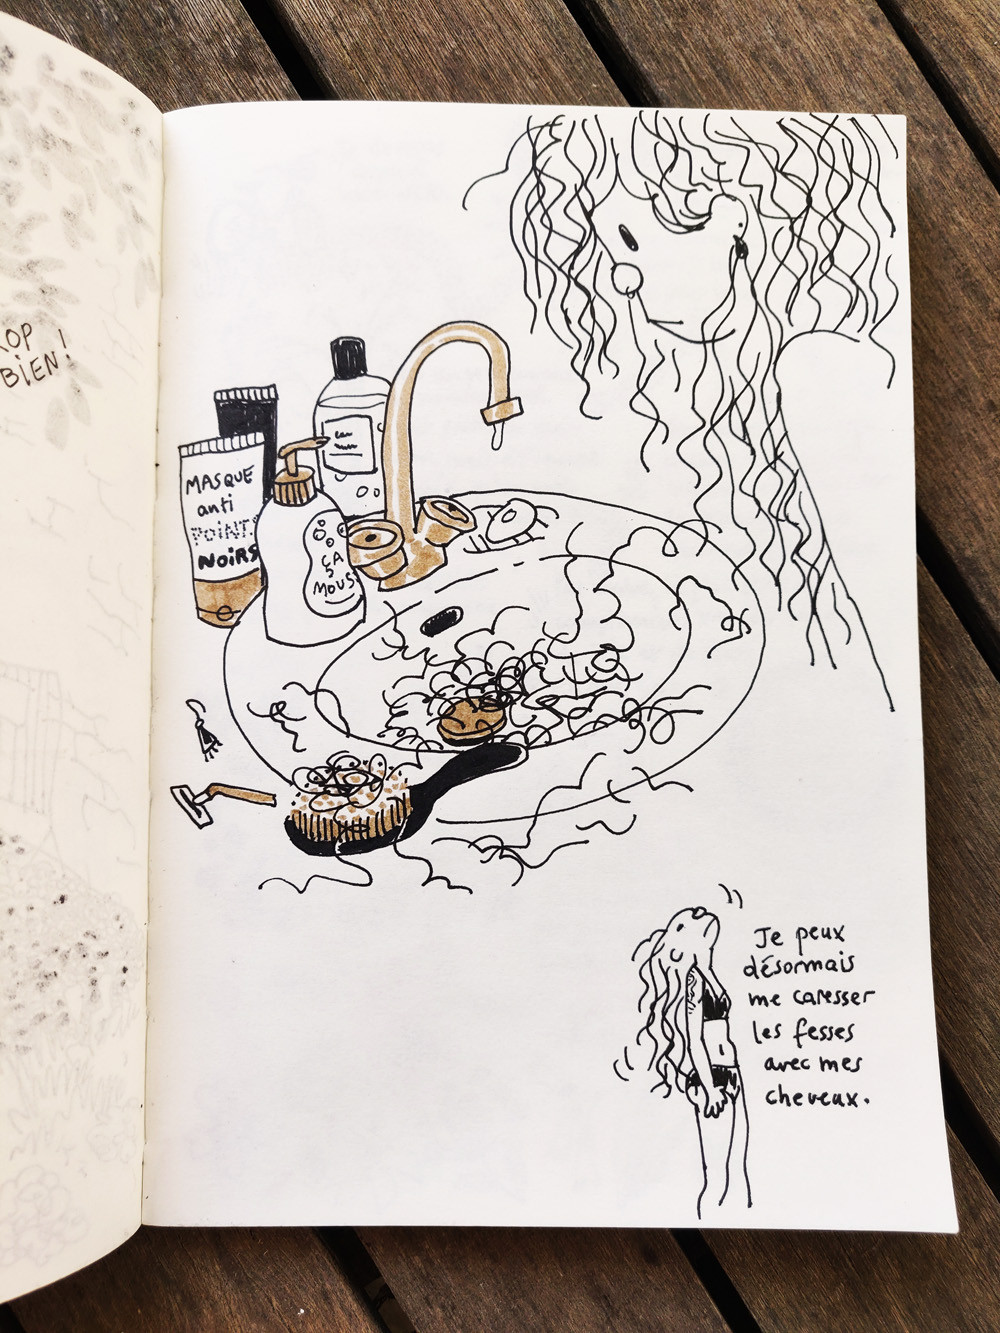 BIEN!
MASQUE
anti
POINTS
NOIRS
ÇA
MOUSSE
Je peux
désormais
me caresser
les fesses
avec mes
cheveux.